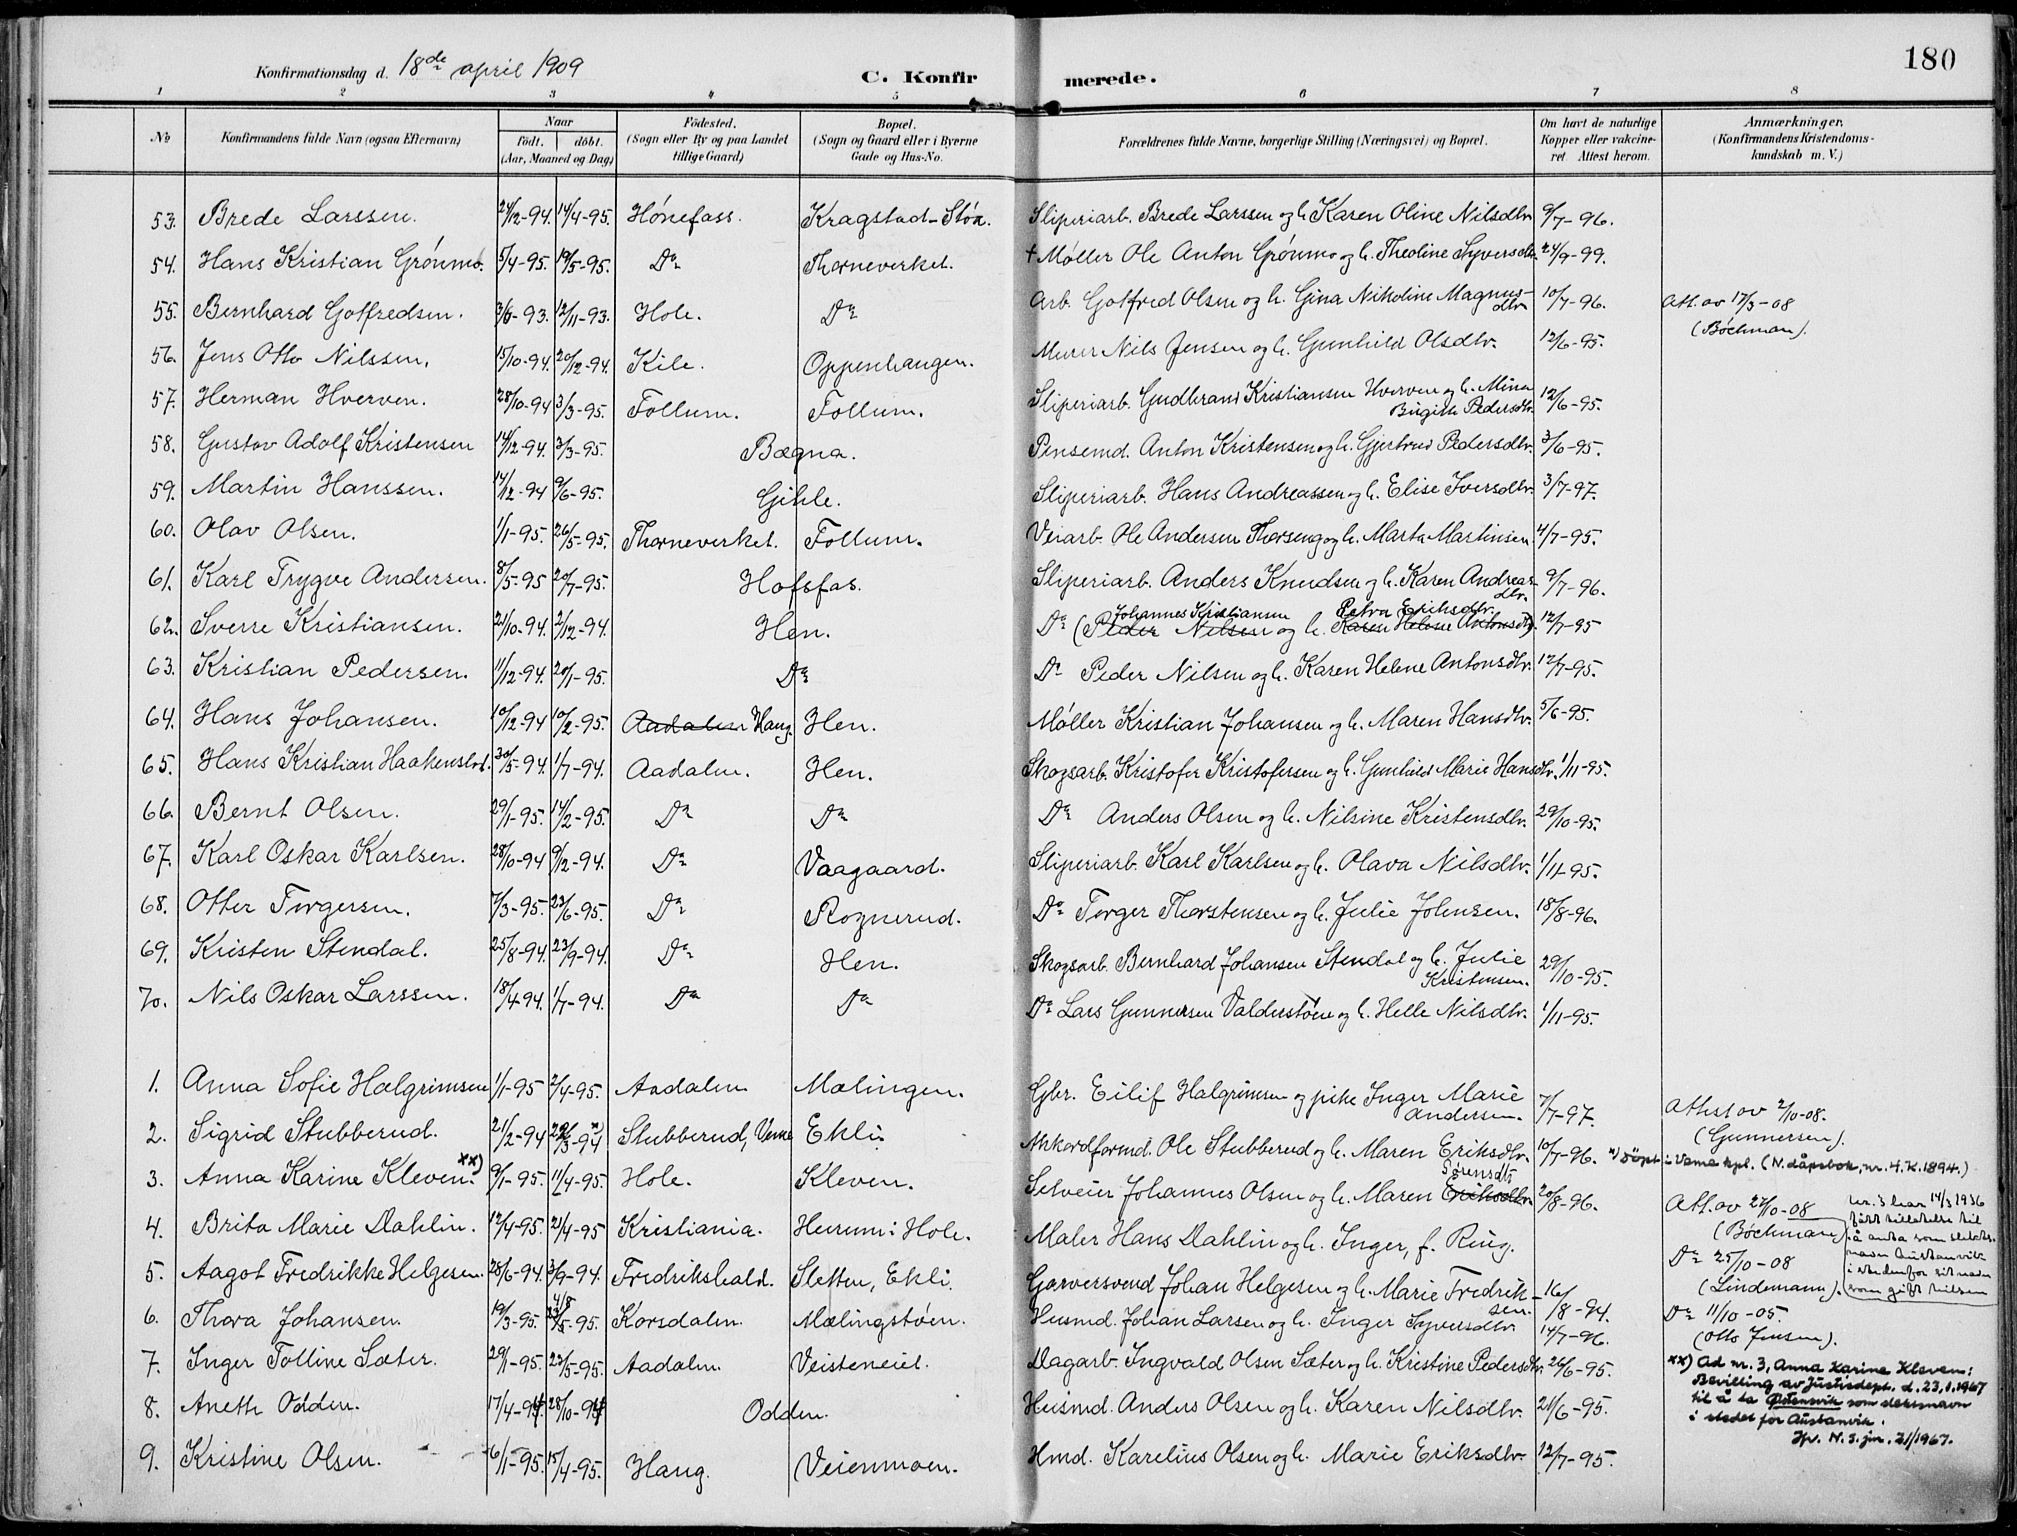 180
Konfirmationsdag d. 18de april 1909
C. Konfirmerede.
1 2 3 4 5 6 7 8
No | Konfirmandens fulde Navn (ogsaa Efternavn) | Naar født. døbt. (Aar, Maaned og Dag) | Fødested. (Sogn eller By og paa Landet tillige Gaard) | Bopæl. (Sogn og Gaard eller i Byerne Gade og Hus-No. | Forældrenes fulde Navne, borgerlige Stilling (Næringsvei) og Bopæl. | Om havt de naturlige Kopper eller vakcineret Attest herom. | Anmærkninger, (Konfirmandens Kristendomskundskab m. V.)
53. Brede Larssen. 24/12-94. 14/4-95. Hønefoss. Kragstad-Støa. Sliperiarb. Brede Larssen og h. Karen Oline Nilsdtr. 9/7-96.
54. Hans Kristian Grønmo. 5/4-95. 19/5-95. Do Thorneverket. + Møller Ole Anton Grønmo og h. Theoline Syversdtr. 24/9-99.
55. Bernhard Gotfredsen. 3/6-93. 12/11-93. Hole. Do Arb. Gotfred Olsen og h. Gina Nikoline Magnusdtr. 10/7-96. Att. av 17/3-08 (Bøchman).
56. Jens Otto Nilssen. 15/10-94. 20/12-94. Kile. Oppenhaugen. Murer Nils Jensen og h. Gunhild Olsdtr. 12/6-95.
57. Herman Hverven. 28/10-94 3/3-95. Follum. Follum. Sliperiarb. Gudbrand Kristiansen Hverven og h. Mina Birgitte Pedersdtr. 12/6-95.
58. Gustav Adolf Kristensen 14/12-94. 3/3-95. Bægna. Pensemd. Anton Kristensen og h. Gjertrud Pedersdtr. 3/6-95.
59. Martin Hanssen. 14/12-94 9/6-95. Gihle. Sliperiarb. Hans Andreassen og h. Elise Iversdtr. 3/7-97.
60. Olav Olsen. 1/1-95. 26/5-95. Thorneverket. Follum. Veiarb. Ole Andersen Thorseng og h. Marta Martinsen. 4/7-95.
61. Karl Trygve Andersen. 8/5-95 20/7-95. Hofsfos. Sliperiarb. Anders Knudsen og h. Karen Andreasdtr. 9/7-96.
62. Sverre Kristiansen. 21/10-94. 2/12-94. Hen. Do (Peder Nilsen og h. Karen Helene Antonsdtr). Johannes Kristiansen Petra Eriksdtr. 12/7-95
63. Kristian Pedersen. 11/12-94. 20/1-95. Do Do Peder Nilsen og h. Karen Helene Antonsdtr. 12/7-95.
64. Hans Johansen. 10/12-94 10/2-95. Aadalen Haug. Hen. Møller Kristian Johansen og h. Maren Hansdtr. 5/6-95.
65. Hans Kristian Haakenstad. 30/5-94. 1/7-94. Aadalen. Hen. Skogsarb. Kristofer Kristofersen og h. Gunhild Marie Hansdtr. 1/11-95.
66. Bernt Olsen. 29/1-95. 17/2-95. Do Do Do Anders Olsen og h. Nilsine Kristensdtr. 29/10-95.
67. Karl Oskar Karlsen. 28/10-94 9/12-94. Do Vaagaard. Sliperiarb. Karl Karlsen og h. Olava Nilsdtr. 1/11-95.
68. Otter Torgersen. 7/3-95. 23/6-95. Do Rognerud. Do Torger Thorstensen og h. Julie Johnsen. 18/8-96.
69. Kristen Stendal. 25/8-94. 23/9-94. Do Hen. Skogsarb. Bernhard Johansen Stendal og h. Julie Kristensen. 29/10-95.
70. Nils Oskar Larssen. 18/4-94. 1/7-94. Do Do Do Lars Gunnersen Valderstøen og h. Helle Nilsdtr. 1/11-95.
1. Anna Sofie Halgrimsen 1/1-95 2/4-95. Aadalen Mælingen. Gbr. Eilif Halgrimsen og pike Inger Marie Andersen. 7/7-97. Attest av 2/10-08. (Gunnersen).
2. Sigrid Stubberud. 21/2-94 Stubberud, Veme Ekli. Akkordformd. Ole Stubberud og h. Maren Eriksdtr. 10/7-96. *) Döpt i Veme kpl. (N. dåpsbok, nr. 4. K. 1894.)
3. Anna Karine Kleven. xx) 9/1-95. 11/4-95. Hole. Kleven. Selveier Johannes Olsen og h. Maren Eriksdtr. Sørensdtr 20/8-96. Att. av 27/10-08 (Bøchman)
nr. 3 har 14/3 1936 fått tillatelse til å anta som slektsnavn Austanvik istedenfor sit navn som gift Nilsen
4. Brita Marie Dahlin. 12/4-95. 21/4-95 Kristiania. Hurum i Hole. Maler Hans Dahlin og h. Inger, f. Ring. Do 25/10-08 (Lindemann).
5. Aagot Fredrikke Helgesen. 28/6-94. 3/9-94. Fredrikshald. Sletten, Ekli. Garversvend Johan Helgesen og h. Marie Fredriksen. 16/8-94. Do 11/10-05. (Otto Jensen).
6. Thora Johansen. 19/3-95. Korsdalen. Mælingstøen. Husmd. Johan Larsen og h. Inger Syversdtr. 14/7-96.
7. Inger Tolline Sæter. 29/1-95. 23/5-95. Aadalen. Veisteneiet. Dagarb. Ingvald Olsen Sæter og h. Kristine Pedersdtr. 26/6-95.
8. Aneth Odden. 17/4-94. 28/10-94 Odden. Husmd. Anders Olsen og h. Karen Nilsdtr. 21/6-95.
9. Kristine Olsen. 6/1-95. 15/4-95. Haug. Veienmoen. Hmd. Karelius Olsen og h. Marie Eriksdtr. 12/7-95.
xx) Ad nr. 3, Anna Karine Kleven:
Bevilling av Justisdept. d. 23.1.1967
til å ta Østensvik som slektsnavn
i stedet for Austanvik.